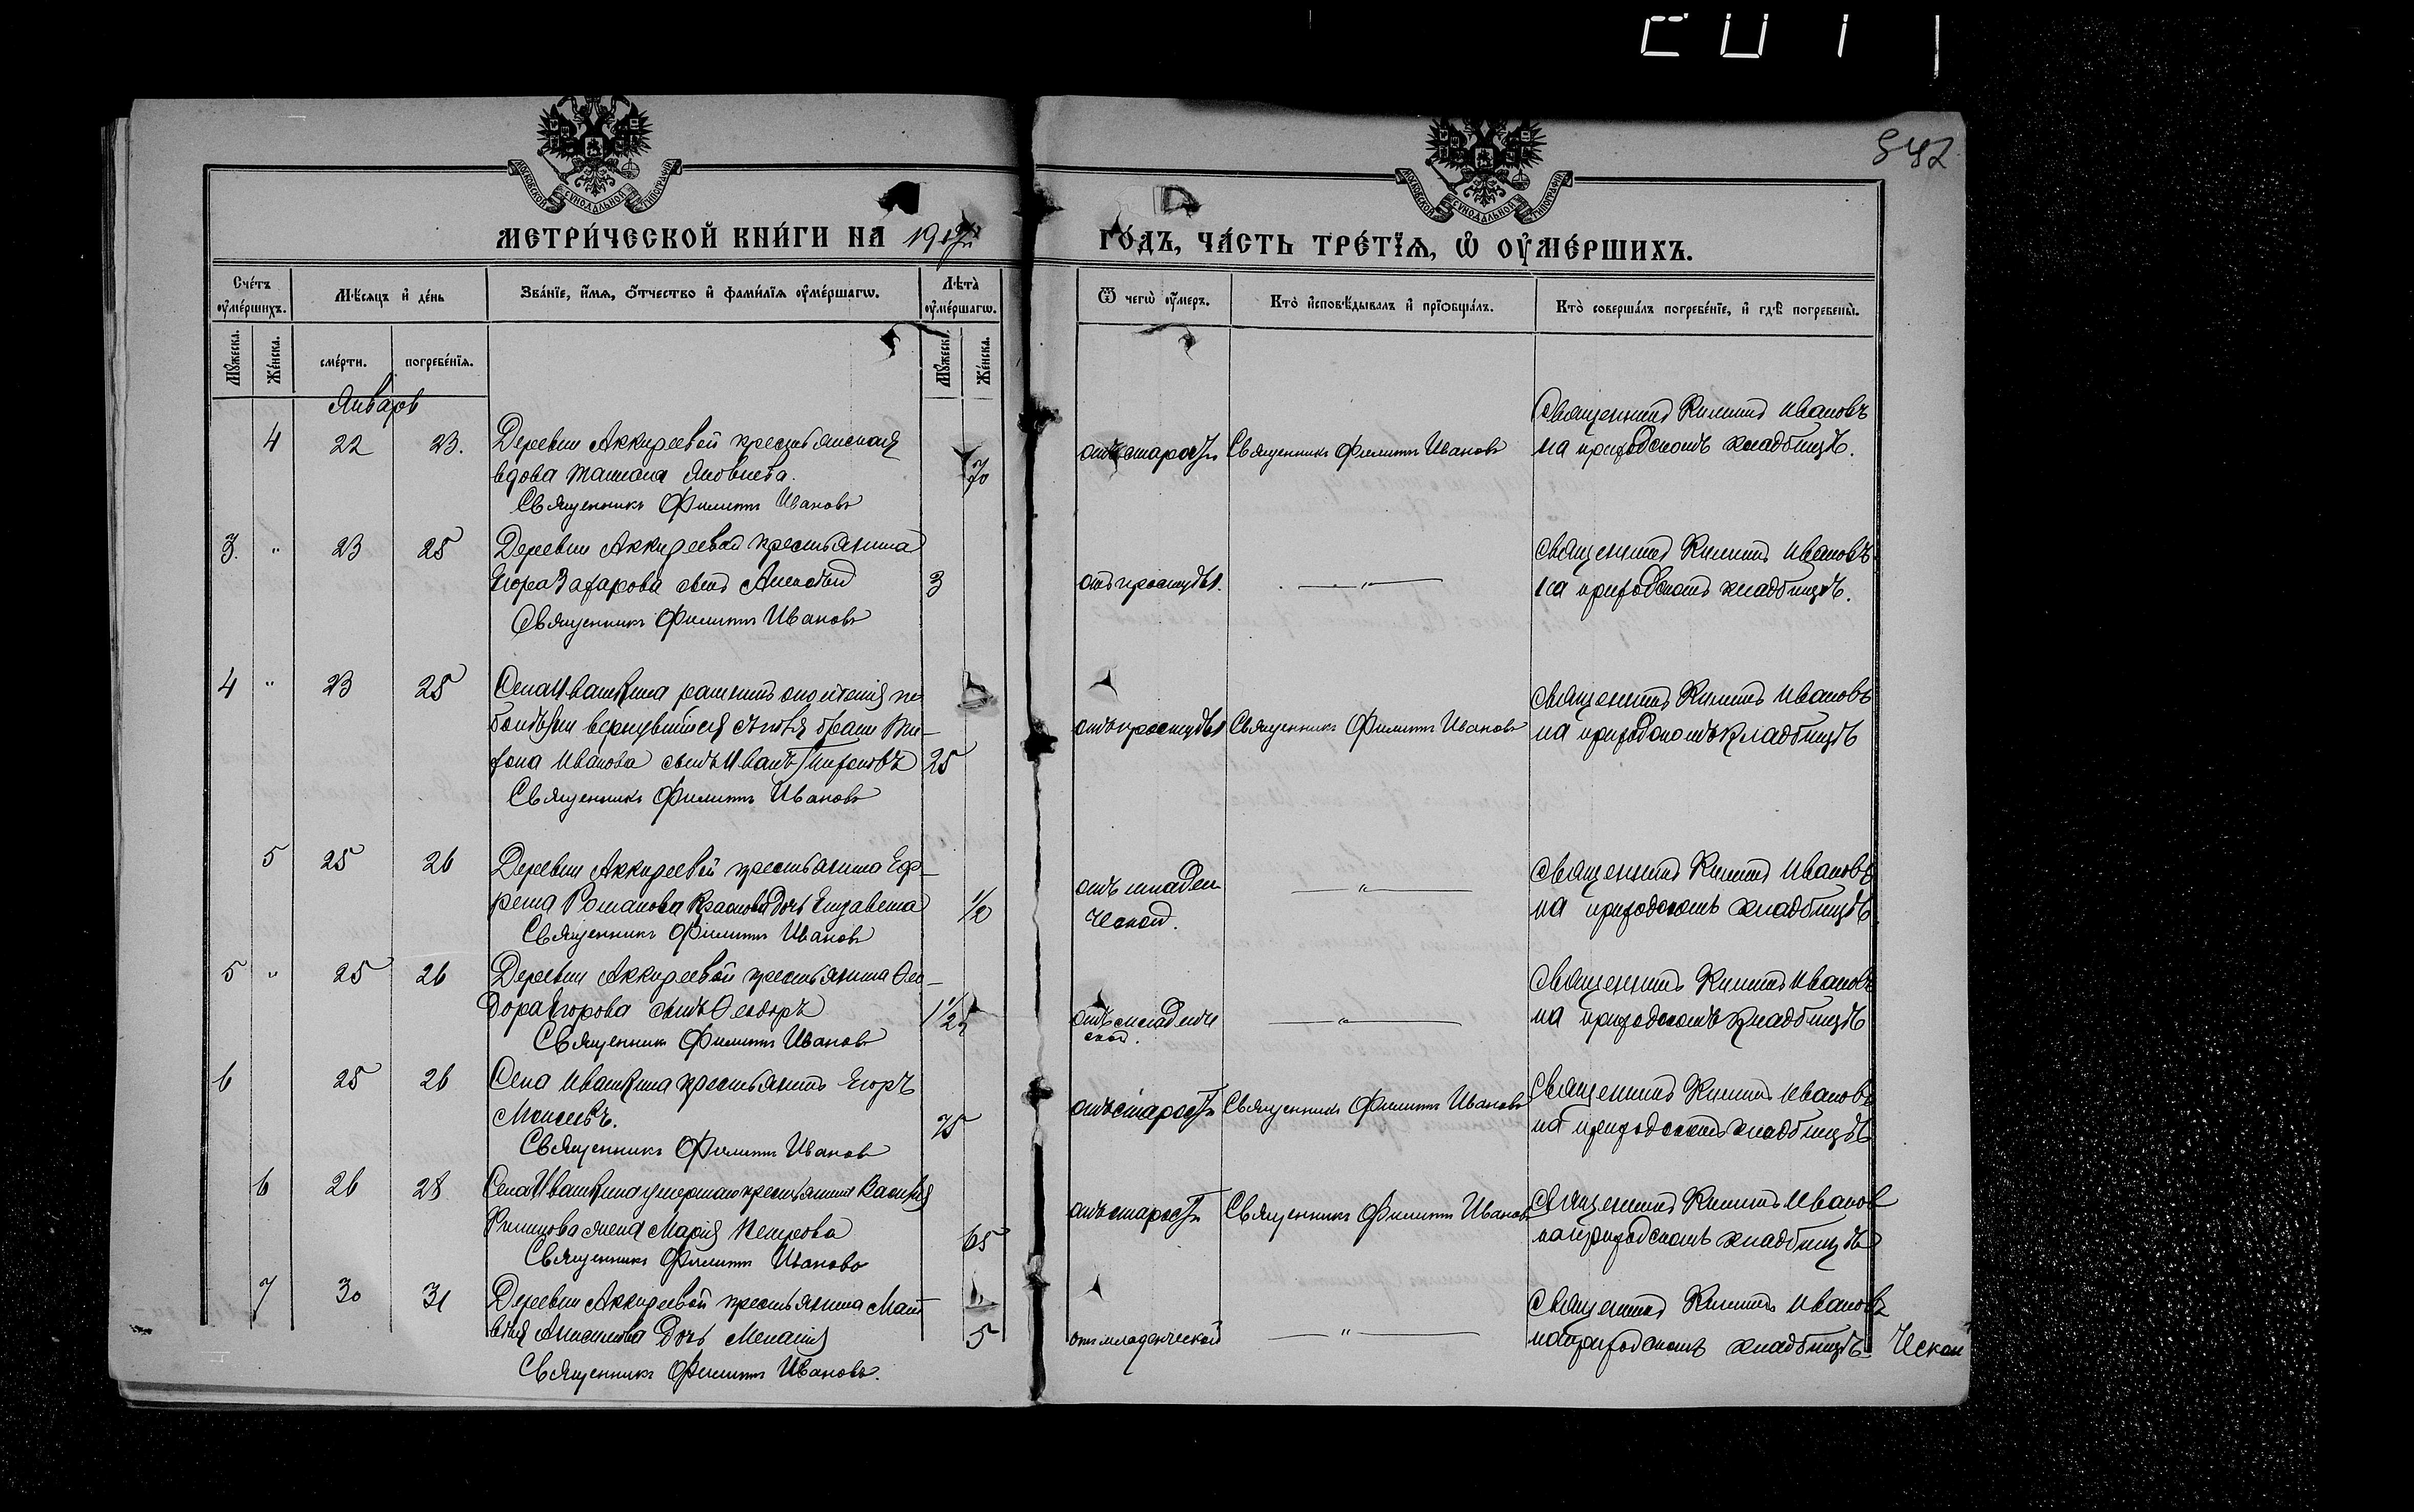 542
МОСКОВСКОЙ СѴНОДАЛЬНОЙ ТИПОГРАФІИ
МОСКОВСКОЙ СѴНОДАЛЬНОЙ ТИПОГРАФІИ
МЕТРИ́ЧЕСКОЙ КНИ́ГИ НА 190
ГО́ДЪ, ЧА́СТЬ ТРЕ́ТЇѦ, Ѽ ОУ҆МЕ́РШИХЪ.
Сче́тъ оу҆ме́ршихъ.
Мѣ́сяцъ и҆ де́нь
Зва́нїе, и҆́мѧ, ѻ҆́тчество и҆ фами́лїѧ оу҆ме́ршагѡ.
Лѣ́та оу҆ме́ршагѡ.
Ѿ чегѡ̀ оу҆́меръ.
Кто̀ и҆сповѣ́дывалъ и҆ прїѡбща́лъ.
Кто̀ соверша́лъ погребе́нїе, и҆ гдѣ̀ погребены̀.
Мꙋ́жеска.
Же́нска.
сме́рти.
погребе́нїѧ.
Мꙋ́жеска.
Же́нска.
Январь
4 22 23. Деревни Аккиреевой крестьянская
вдова Татіана Яковлева. 70
Священникъ Филиппъ Ивановъ
отъ старости Священникъ Филиппъ Ивановъ
Священникъ Филиппъ Ивановъ
на приходскомъ кладбищѣ.
3. " 23 25 Деревни Аккиреевой крестьянина
Егора Захарова сынъ Алексѣй 3
Священникъ Филиппъ Ивановъ
отъ простуды. — " —
Священникъ Филиппъ Ивановъ
на приходскомъ кладбищѣ.
4 " 23 25 Села Ивашкина
вернувшійся
Ивановъ сынъ Иванъ 25
Священникъ Филиппъ Ивановъ
отъ простуды Священникъ Филиппъ Ивановъ
Священникъ Филиппъ Ивановъ
на приходскомъ кладбищѣ
5 25 26 Деревни Аккиреевой крестьянина Еф-
рема Романова дочь Елизавета 1/2
Священникъ Филиппъ Ивановъ
отъ младен
ческой. — " —
Священникъ Филиппъ Ивановъ
на приходскомъ кладбищѣ.
5 " 25 26 Деревни Аккиреевой крестьянина Ѳео-
дора Егорова сынъ Ѳеодоръ 1 1/2
Священникъ Филиппъ Ивановъ
отъ младенче
ской. — " —
Священникъ Филиппъ Ивановъ
на приходскомъ кладбищѣ
6 25 26 Села Ивашкина крестьянинъ Егоръ
Моисеевъ. 75
Священникъ Филиппъ Ивановъ
отъ старости Священникъ Филиппъ Ивановъ
Священникъ Филиппъ Ивановъ
на приходскомъ кладбищѣ
6 26 28 Села Ивашкина умершаго крестьянина Василія
Филиппова жена Марія Петрова 65
Священникъ Филиппъ Ивановъ
отъ старости Священникъ Филиппъ Ивановъ
Священникъ Филиппъ Иванов
на приходскомъ кладбищѣ
7 30 31 Деревни Аккиреевой крестьянина Мат-
вѣя дочь Меланія 5
Священникъ Филиппъ Ивановъ.
отъ младенческой — " —
Священникъ Филиппъ Ивановъ
на приходскомъ кладбищѣ